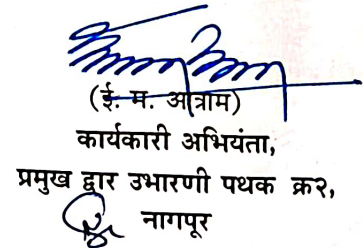 (ई. म. आत्राम)
कार्यकारी अभियंता,
प्रमुख द्वार उभारणी पथक क्र२,
नागपूर